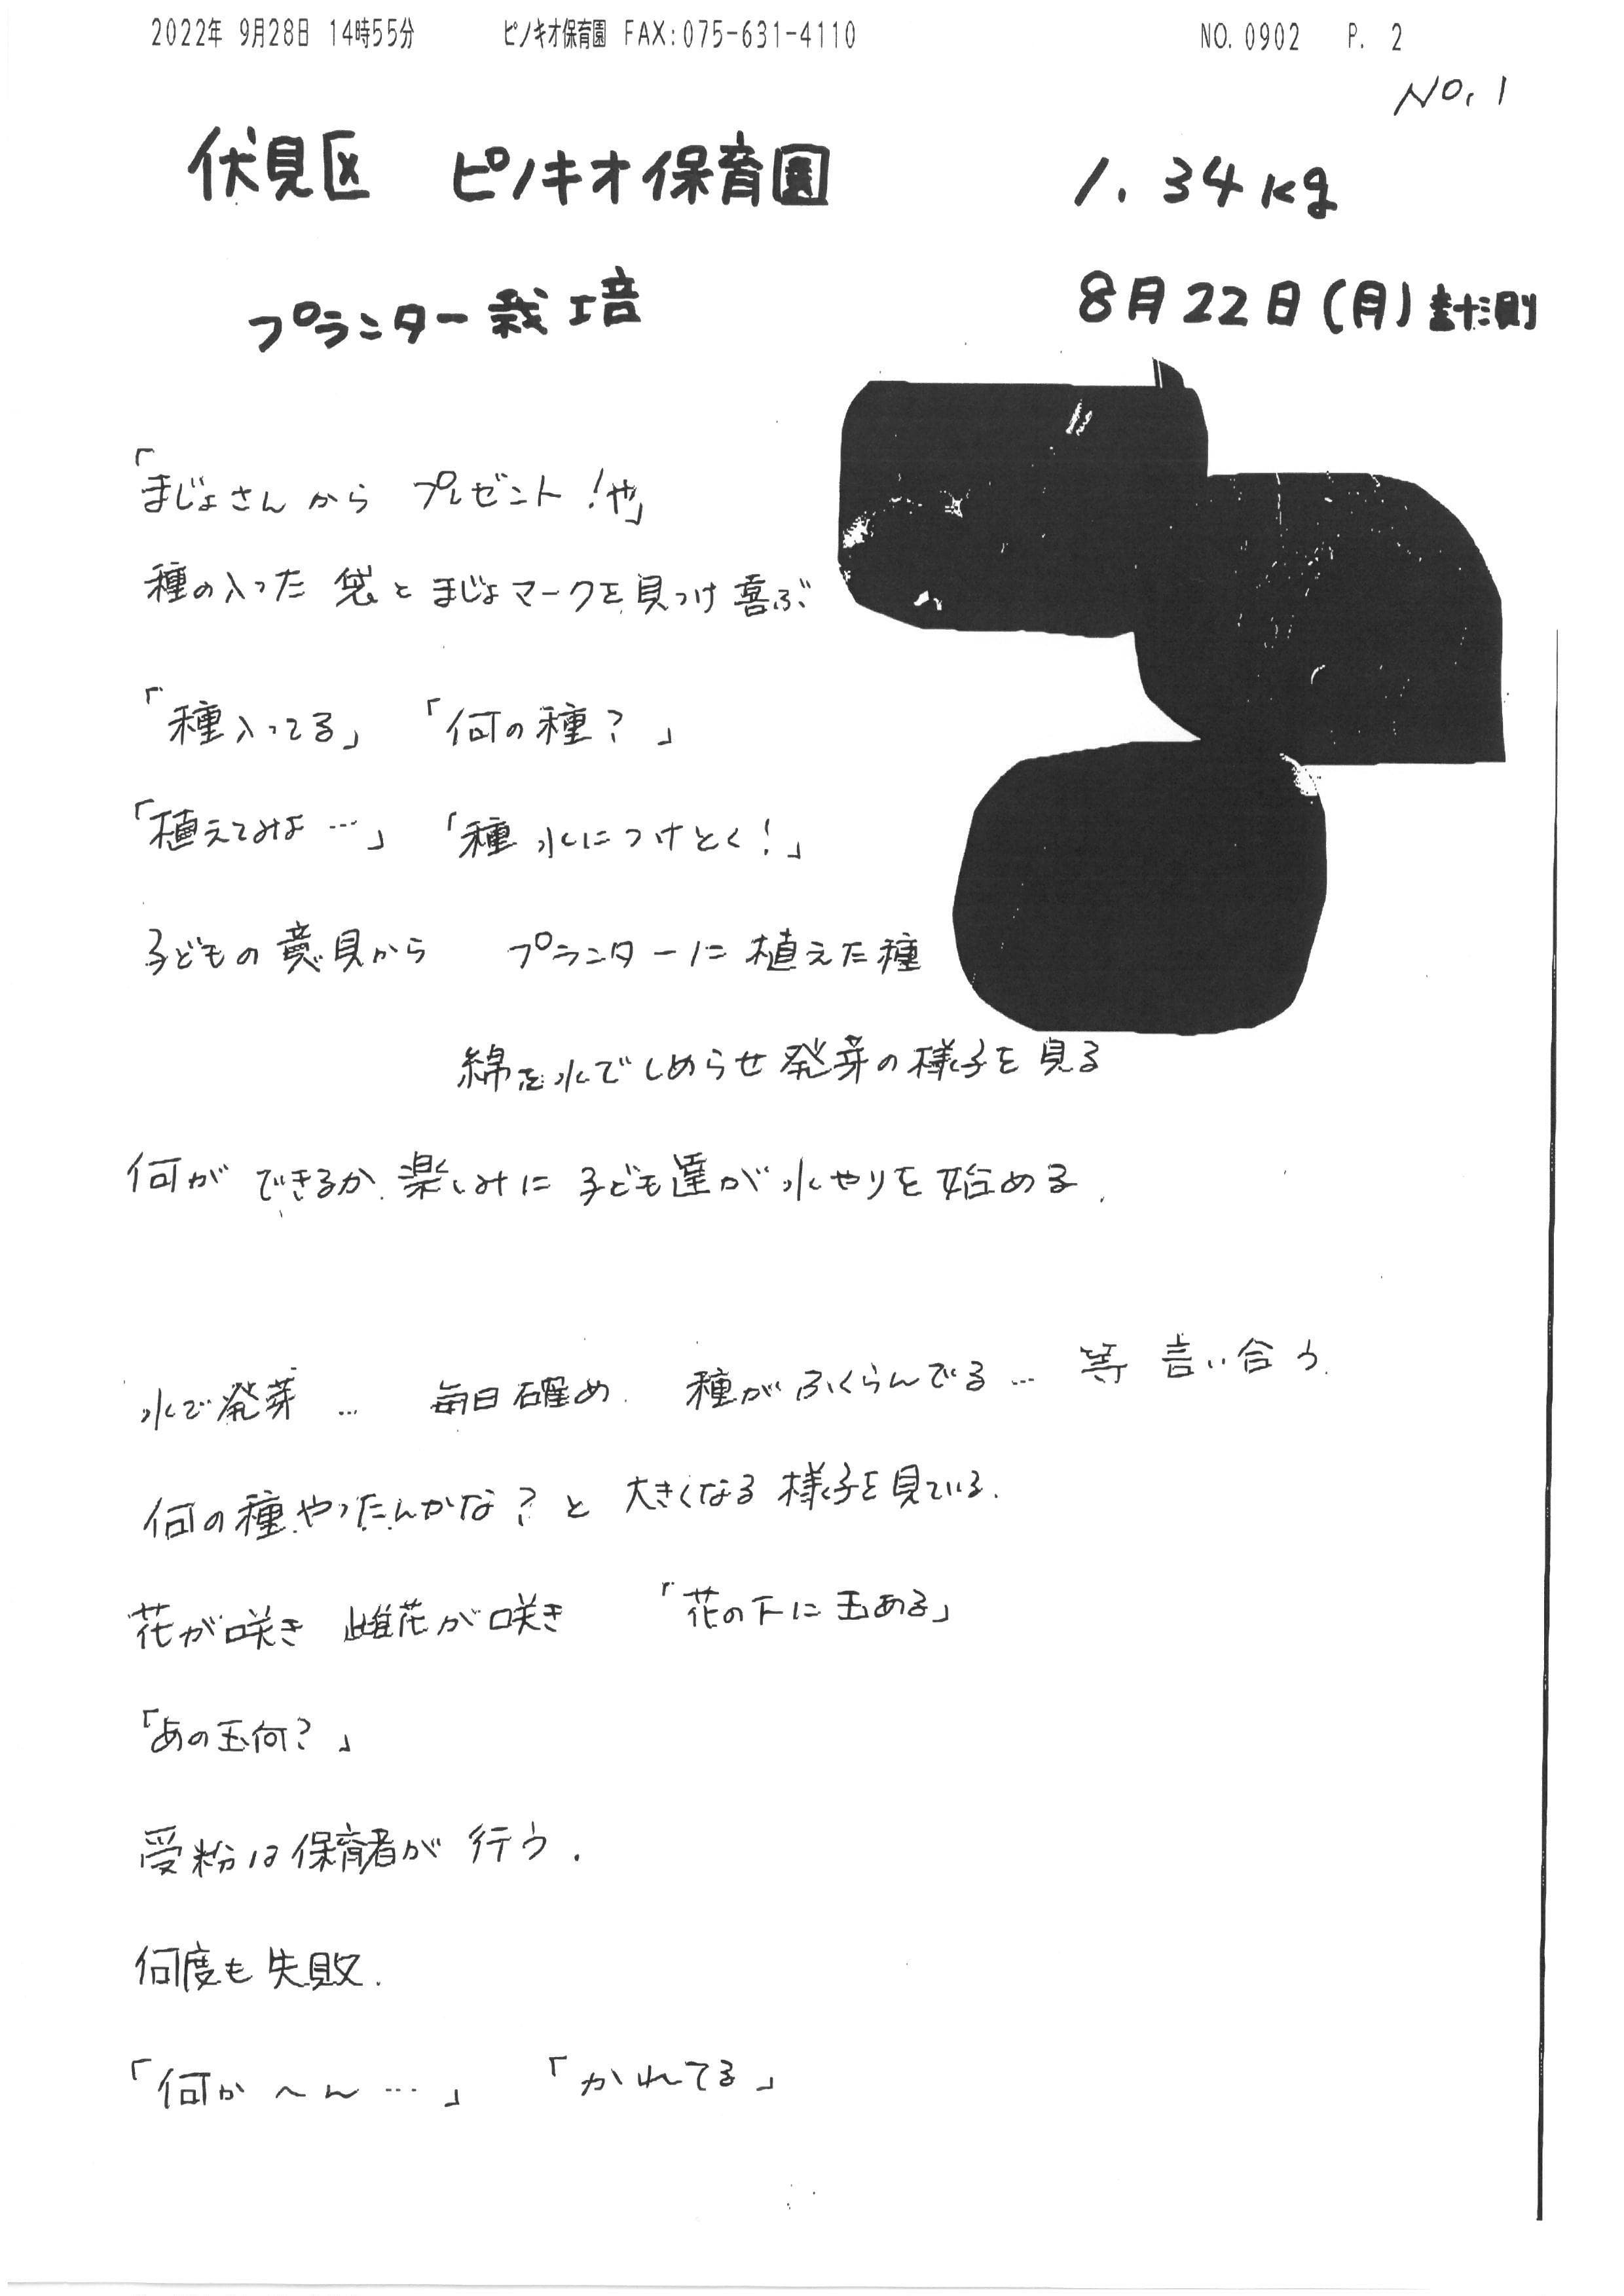 2022年 9月28日 14時55分 ピノキオ保育園 FAX:075-631-4110 NO.0902 P. 2
No.1
伏見区 ピノキオ保育園 1.34kg
プランター栽培 8月22日(月)計測
「まじょさんから プレゼント!や」
種の入った 袋と まじょマークを見つけ喜ぶ
「種入ってる」 「何の種?」
「植えてみよ…」 「種 水につけとく!」
子どもの意見から プランターに植えた種
綿を水でしめらせ発芽の様子を見る
何ができるか楽しみに 子ども達が水やりを始める.
水で発芽 … 毎日確め. 種がふくらんでる… 等 言い合う.
何の種やったんかな?と 大きくなる様子を見ている.
花が咲き 雌花が咲き 「花の下に玉ある」
「あの玉何?」
受粉は保育者が行う.
何度も失敗.
「何か へん…」 「かれてる」